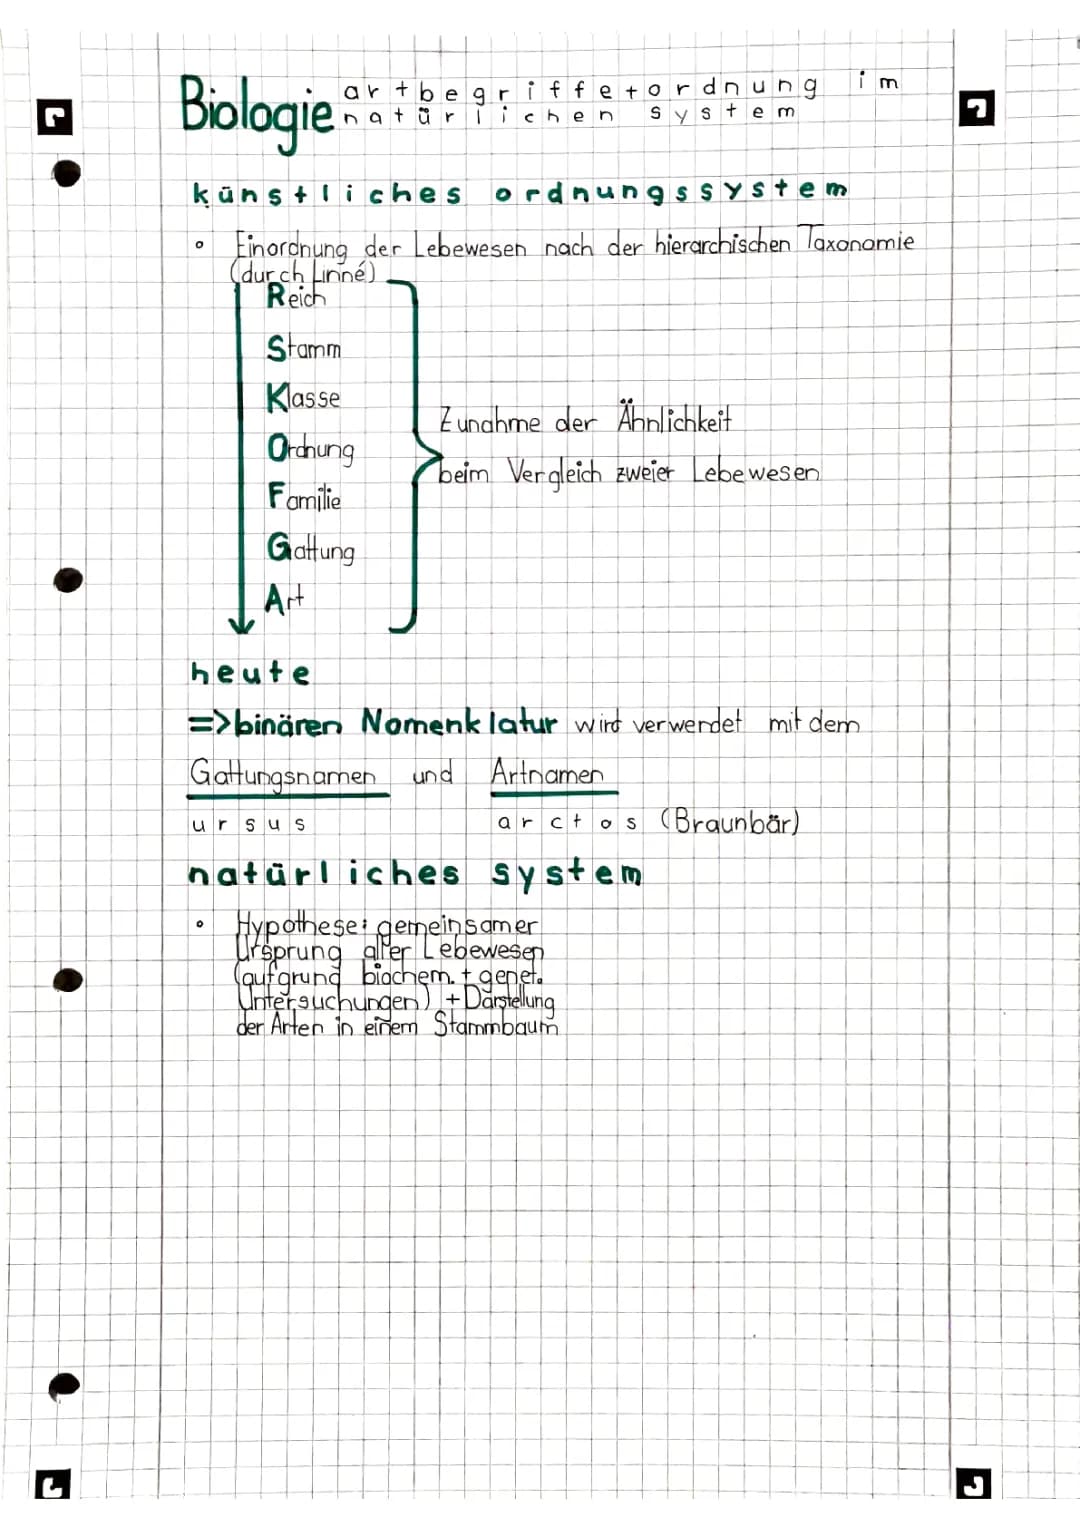 Biologie artbegriffe+ordnung im
natürlichen system
künstliches ordnungssystem
° Einordnung der Lebewesen nach der hierarchischen Taxonomie
(durch Linné)
Reich
Stamm
Klasse
Ordnung
Familie
Gattung
Art
Zunahme der Ähnlichkeit
beim Vergleich zweier Lebewesen
heute
=>binären Nomenklatur wird verwerdet mit dem
Gattungsnamen und Artnamen
ursus arctos (Braunbär)
natürliches system
° Hypothese: gemeinsamer
Ursprung aller Lebewesen
(aufgrund biochem. + genet.
Untersuchungen) + Darstellung
der Arten in einem Stammbaum